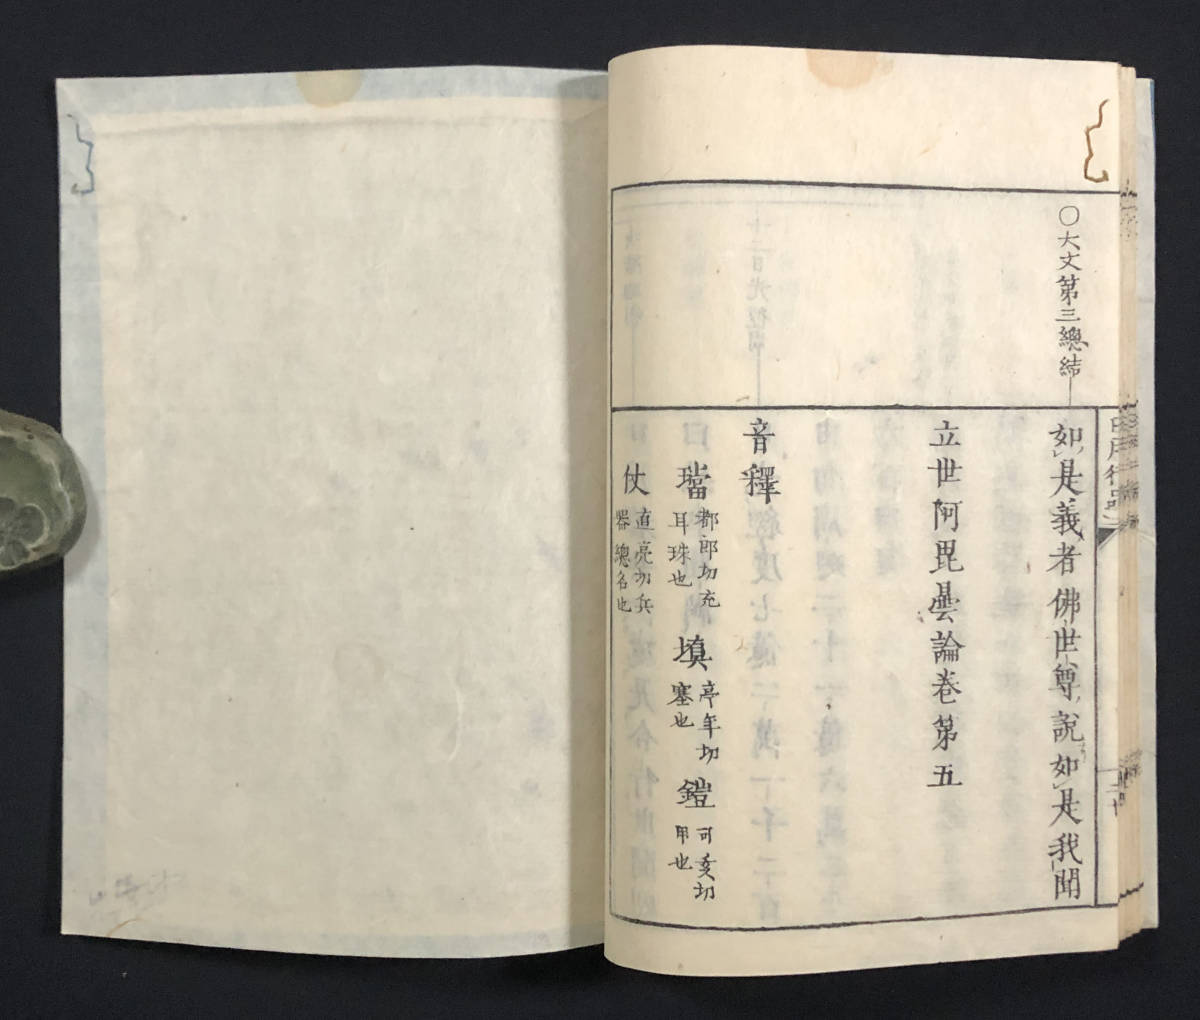 〇大文第三總結
如是義者佛世尊說如是我聞
立世阿毘曇論卷第五
音釋
璫 都郎切充耳珠也 填 亭年切塞也 鎧 可亥切甲也
仗 直亮切兵器總名也